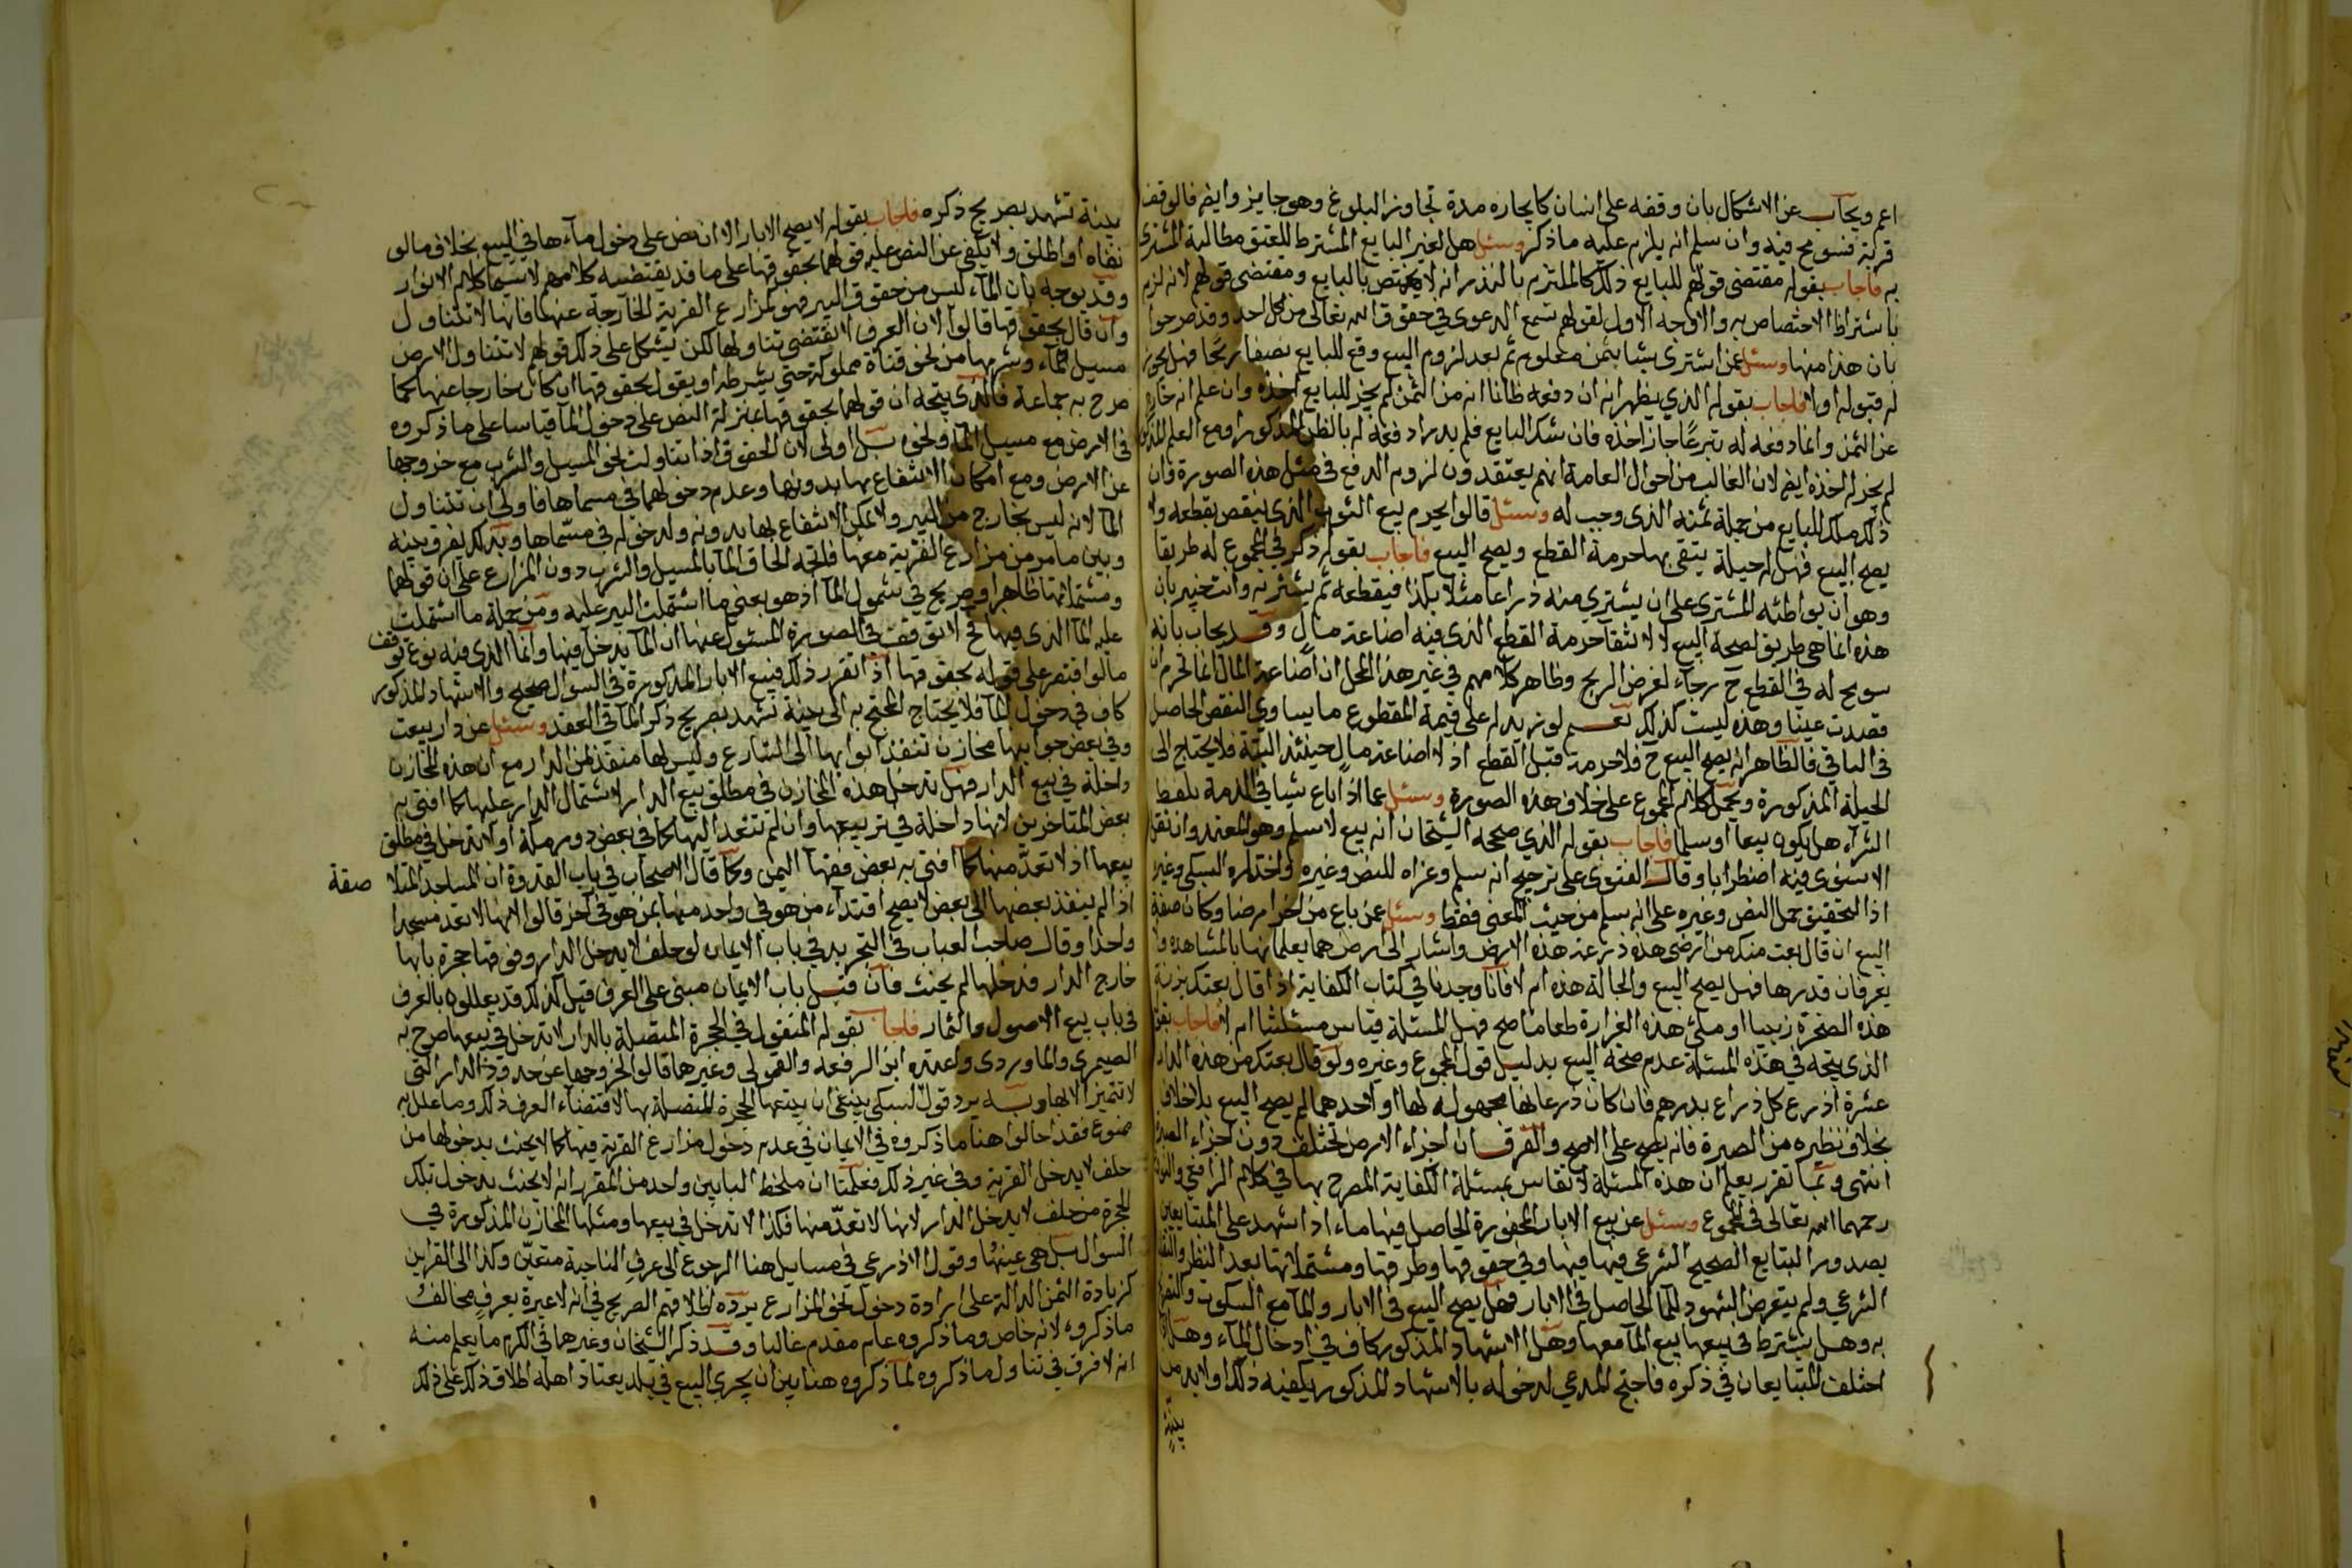 اعم ويجاب عن الاشكال بان وقفه على انسان كايجاره مدة تجاوز البلوغ وهو جايز وايض فالوقف
قربة فسومح فيه وان سلم انه يلزم عليه ماذكر وسئل هل لغير البايع المشترط للعتق مطالبة المشترى
به فاجاب بقوله مقتضى قولهم للبايع ذلك كالملتزم بالنذر انه لا يختص بالبايع ومقتضى قولهم لانه لزم
باشتراط الاختصاص به والاوجه الاول لقولهم تسمع الدعوى في حقوق الله تعالى من كل احد وقد صرحوا
بان هذا منها وسئل عمن اشترى شيا بثمن معلوم ثم بعد لزوم البيع وقع للبايع نصفا بربحا فهل يجوز
له قبوله اولا فاجاب بقوله الذي يظهر انه ان دفعه ظانا انه من الثمن لم يجز للبايع اخذه وان علم انه خارج
عن الثمن وانما دفعه له تبرعا جاز اخذه فان شك البايع فلم يدر اد فعه له بالظن المذكور او مع العلم المذكور
لم يجز له اخذه ايض لان الغالب من احوال العامة انهم يعتقدون لزوم الدفع في مثل هذه الصورة فان
ذلك ملك للبايع من جملة ثمنه الذى وجب له وسئل قالوا يحرم بيع الثوب الذى ينقص بقطعه ولا
يصح البيع فهل له حيلة يتقى بها حرمة القطع ويصح البيع فاجاب بقوله ذكر في المجموع له طريقا
وهو ان يواطئه المشترى على ان يشتري منه ذراعا مثلا بكذا فيقطعه ثم يشتريه وانت خبير بان
هذه انما هي طريق لصحة البيع لا لانتفآ حرمة القطع الذى فيه اضاعة مال وقد يجاب بانه
سومح له في القطع ح رجآء لغرض الربح وظاهر كلامهم في غير هذا المحل ان اضاعة المال انما تحرم ان
قصدت عبثا وهذه ليست كذلك نعم لو زيد له على قيمة المقطوع ما يساوى النقص الحاصل
في الباقي فالظاهر انه يصح البيع ح فلا حرمة قبل القطع اذ لا اضاعة مال حينئذ البتة فلا يحتاج الى
الحيلة المذكورة ويحمل كلام المجموع على خلاف هذه الصورة وسئل عما اذا باع شيا في الذمة بلفظ
الشرآء هل يكون بيعا او سلما فاجاب بقوله الذي صححه الشيخان انه بيع لا سلم وهو المعتمد وان نقل
الاسنوى فيه اضطرابا وقال الفتوى على ترجيح انه سلم وعزاه للنص وغيره واختاره السبكى وغيره
اذ التحقيق حمل النص وغيره على انه سلم من حيث المعنى فقط وسئل عمن باع من اخر ارضا وكان صفة
البيع ان قال بعت منك من ارضى هذه ذرعة هذه الارض واشار الى ارض هما يعلمانها بالمشاهدة ولا
يعرفان قدرها فهل يصح البيع والحالة هذه ام لا فانا وجدنا في كتاب الكفاية اذا قال بعتك بزنة
هذه الصخرة زبيبا او ملئ هذه الغرارة طعاما صح فهل المسئلة قياس مسئلتنا ام لا فاجاب بقوله
الذى يتجه في هذه المسئلة عدم صحة البيع بدليل قول المجموع وغيره ولو قال بعتك من هذه الدار
عشرة اذرع كل ذراع بدرهم فان كان ذرعانها مجهوله لهما او لاحدهما لم يصح البيع بلا خلاف
بخلاف نظيره من الصبرة فانه يصح على الاصح والفرق ان اجزاء الارض تختلف دون اجزاء الصبرة
انتهى وبما تقرر يعلم ان هذه المسئلة لا تقاس بمسئلة الكفاية المصرح بها في كلام الرافعي والنووي
رحمهما الله تعالى في المجموع وسئل عن بيع الابار المحفورة الحاصل فيها ماء اذا شهد على المتبايعين
بصدور التبايع الصحيح الشرعى فيها فيها وفي حقوقها وطرقها ومشتملاتها بعد النظر والتقليب
الشرعي ولم يتعرض الشهود للمآ الحاصل في الابار فهل يصح البيع في الابار والمآ مع السكوت والتعرض
به وهل يشترط في بيعها بيع المآ معها وهل الاشهاد المذكور كاف في ادخال المآء وهل اذا
اختلف المتبايعان في ذكره فاحتج المدعي لدخوله بالاشهاد المذكور يكفيه ذلك او لابد من
بينة
بينة تشهد بصريح ذكره فاجاب بقوله لا يصح الابار الا ان نص على دخول مآءها في البيع بخلاف ما لو
نفاه او اطلق ولا يكفى عن النص عليه قولهما بحقوقها على ما قد يقتضيه كلامهم لا سيما كلام الانوار
وقد يوجه بان المآء ليس من حقوق البير فهو كمزارع القرية الخارجة عنها فانها لا تتناول
وان قال بحقوقها قالوا لان العرف لا يقتضى تناولها لكن يشكل على ذلك قولهم لا تتناول الارض
مسيل المآء وشربها من نحو قناة مملوكة حتى يشرطه او يقول بحقوقها ان كان خارجا عنها كما
صرح به جماعة فالذى يتجه ان قولهما بحقوقها بمنزلة النص على دخول المآ قياسا على ما ذكروه
في الارض مع مسيل المآ ونحوه بل اولى لان الحقوق اذا تناولت نحو المسيل والشرب مع خروجها
عن الارض ومع امكان الانتفاع بها بدونها وعدم دخولهما في مسماها فاولى ان تتناول
المآ لانه ليس بخارج من البير ولا يمكن الانتفاع بها بدونه ولدخوله في مسماها وبذلك يفرق بينه
وبين ما مر من مزارع القرية معها فاتجه الحاق المآ بالمسيل والشرب دون المزارع على ان قولهما
ومشتملاتها ظاهر او صريح في شمول المآ اذ هو بمعنى ما اشتملت البير عليه ومن جملة ما اشتملت
عليه المآ الذى فيها فح لا توقف في الصورة المسئول عنها ان المآ يدخل فيها وانما الذى فيه نوع توقف
ما لو اقتصر على قوله بحقوقها اذا تقرر ذلك فبيع الابار المذكورة في السوال صحيح والاشهاد المذكور
كاف في دخول المآ فلا يحتاج المحتج به الى بينة تشهد بصريح ذكر المآ في العقد وسئل عن دار بيعت
وفي بعض جوانبها مخازن تنفذ ابوابها الى الشارع وليس لها منفذ من الدار مع ان هذه المخازن
داخلة في بيع الدار فهل تدخل هذه المخازن في مطلق بيع الدار لاشتمال الدار عليها كما افتى به
بعض المتاخرين لانها داخلة في تربيعها وان لم تنفذ اليها كما في بعض دور مكة او لا تدخل في مطلق
بيعها اذ لا تعد منها كما افتى به بعض فقها اليمن وكما قال الاصحاب في باب القدوة ان المساجد المتلا صقة
اذا لم ينفذ بعضها الى بعض لا يصح اقتدآء من هو في واحد منها بمن هو في اخر قالوا لانها لا تعد مسجدا
واحدا وقال صاحب العباب في التجريد في باب الايمان لو حلف لا يدخل الدار وفوقها حجرة بابها
خارج الدار فدخلها لم يحنث فان قيل باب الايمان مبنى على العرف قيل كذلك قد يعللون بالعرف
في باب بيع الاصول والثمار فاجاب بقوله المنقول في الحجرة المتصلة بالدار لا تدخل في بيعها صرح به
الصيمري والماوردى واعتمده ابن الرفعه والقمولى وغيرهما قالوا لخروجها عن حدود الدار التى
لا تتميز الا بها وبه يرد قول السبكى ينبغى ان يتبعها الحجرة المتصلة بها لاقتضاء العرف ذلك وما علل به
ممنوع فقد احالوا هنا ما ذكروه في الايمان في عدم دخول مزارع القرية فيها كما لا يحنث بدخولها من
حلف لا يدخل القرية وفي غير ذلك فعلمنا ان ملحظ البابين واحد من المقرر انه لا يحنث بدخول تلك
الحجرة من حلف لا يدخل الدار لانها لا تعد منها فكذا لا تدخل في بيعها ومثلها المخازن المذكورة في
السوال بل هى عينها وقول الاذرعي في مسايل هنا الرجوع الى عرف الناحية متعين وكذا الى القراين
كزيادة الثمن الدالة على ارادة دخول نحو المزارع يرده اطلاقهم الصريح في انه لا عبرة بعرف مخالف
ما ذكروه لانه خاص وما ذكروه عام مقدم غالبا وقد ذكر الشيخان وغيرهما في الكرم ما يعلم منه
انه لا فرق في تناول ما ذكروه لما ذكروه هنا بين ان يجري البيع في بلد يعتاد اهله اطلاق ذلك على ذلك